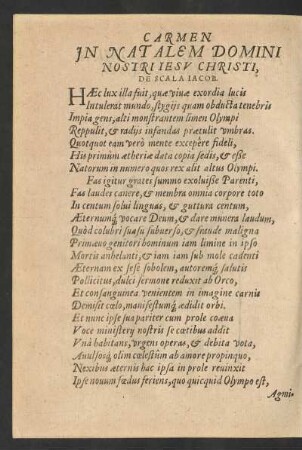 CARMEN
IN NATALEM DOMINI
NOSTRI IESV CHRISTI,
DE SCALA IACOB.
HAEc lux illa fuit, quæ viuæ exordia lucis
Intulerat mundo, stygijs quam obducta tenebris
Impia gens, alti monstrantem limen Olympi
Reppulit, & radijs infandas prætulit vmbras.
Quotquot eam verò mente excepêre fideli,
His primùm ætheriæ data copia sedis, & esse
Natorum in numero quos rex alit altus Olympi.
Fas igitur grates summo exoluisse Parenti,
Fas laudes canere, & membra omnia corpore toto
In centum solui linguas, & guttura centum,
Æternumq́ vocare Deum, & dare munera laudum,
Quòd colubri suasu subuerso, & fraude maligna
Primæuo genitori hominum iam limine in ipso
Mortis anhelanti, & iam iam sub mole cadenti
Æternam ex sese sobolem, autoremq́ salutis
Pollicitus, dulci sermone reduxit ab Orco,
Et consanguinea venientem in imagine carnis
Demisit cœlo, manifestumq́ ædidit orbi.
Et nunc ipse sua pariter cum prole coæua
Voce ministerij nostris se cœtibus addit
Vnà habitans, vrgens operas, & debita vota,
Auulsosq́ olim cœlestiũm ab amore propinquo,
Nexibus æternis hac ipsa in prole reuinxit
Ipse nouum fœdus feriens, quo quicquid Olympo est,
Agmi-